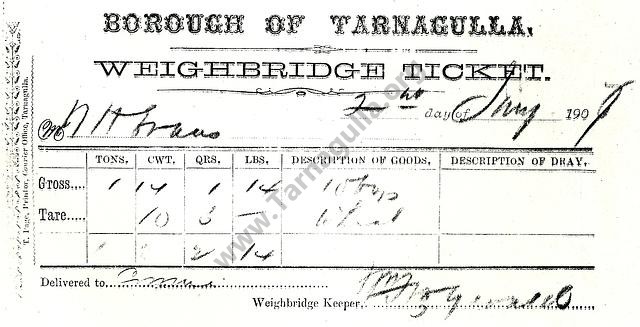 BOROUGH OF TARNAGULLA.
WEIGHBRIDGE TICKET.
2nd day of 190
N H Evans
TONS, CWT. QRS. LBS. DESCRIPTION OF GOODS, DESCRIPTION OF DRAY,
Gross..... 1 14 1 14 10 bags
Tare..... 10 3 — Wheat
2 14
Delivered to
Weighbridge Keeper, Fitzgerald
T. Page, Printer, Courier Office, Tarnagulla.
www.Tarnagulla.org